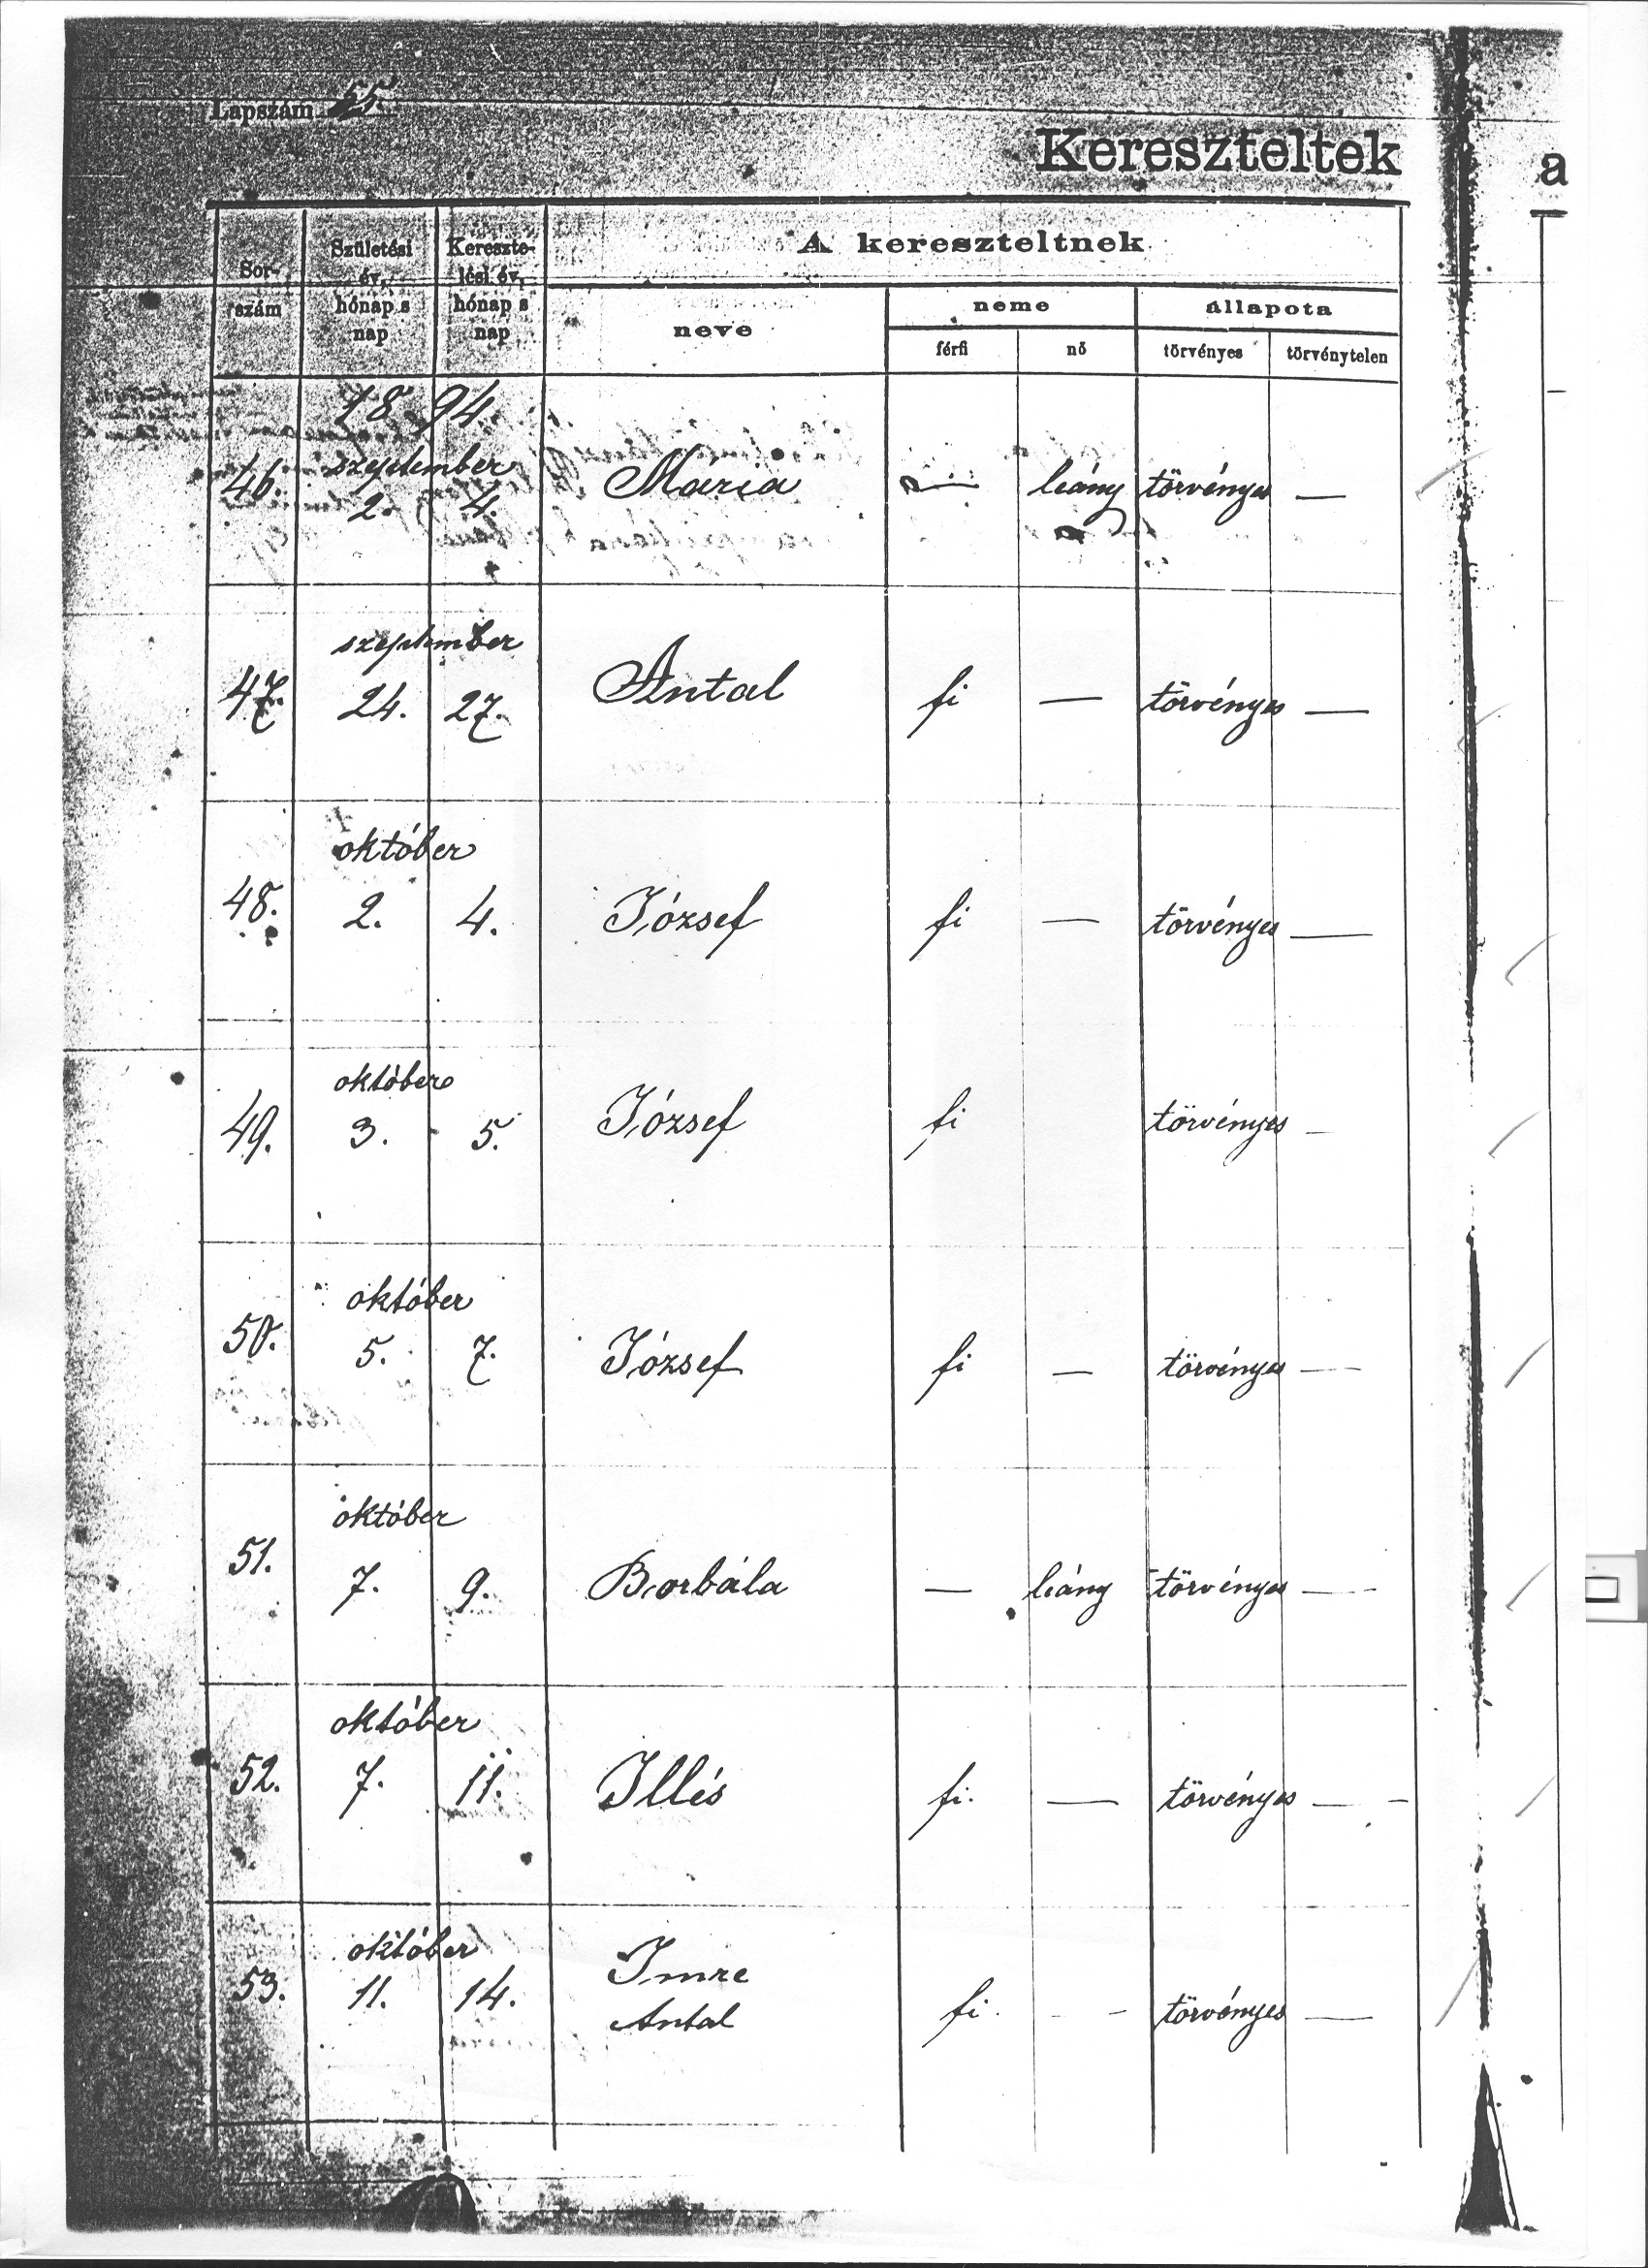 Lapszám 55.
Kereszteltek
a
Sor-
szám
Születési
év,
hónap s
nap
Kereszte-
lési év,
hónap s
nap
A kereszteltnek
neve
neme
állapota
férfi
nő
törvényes
törvénytelen
1894
46. szeptember 2. 4. Mária — leány törvényes —
47. szeptember 24. 27. Antal fi — törvényes —
48. október 2. 4. József fi — törvényes —
49. október 3. 5. József fi törvényes —
50. október 5. 7. József fi — törvényes —
51. október 7. 9. Borbála — leány törvényes —
52. október 7. 11. Illés fi. — törvényes —
53. október 11. 14. Imre
Antal fi. — törvényes —